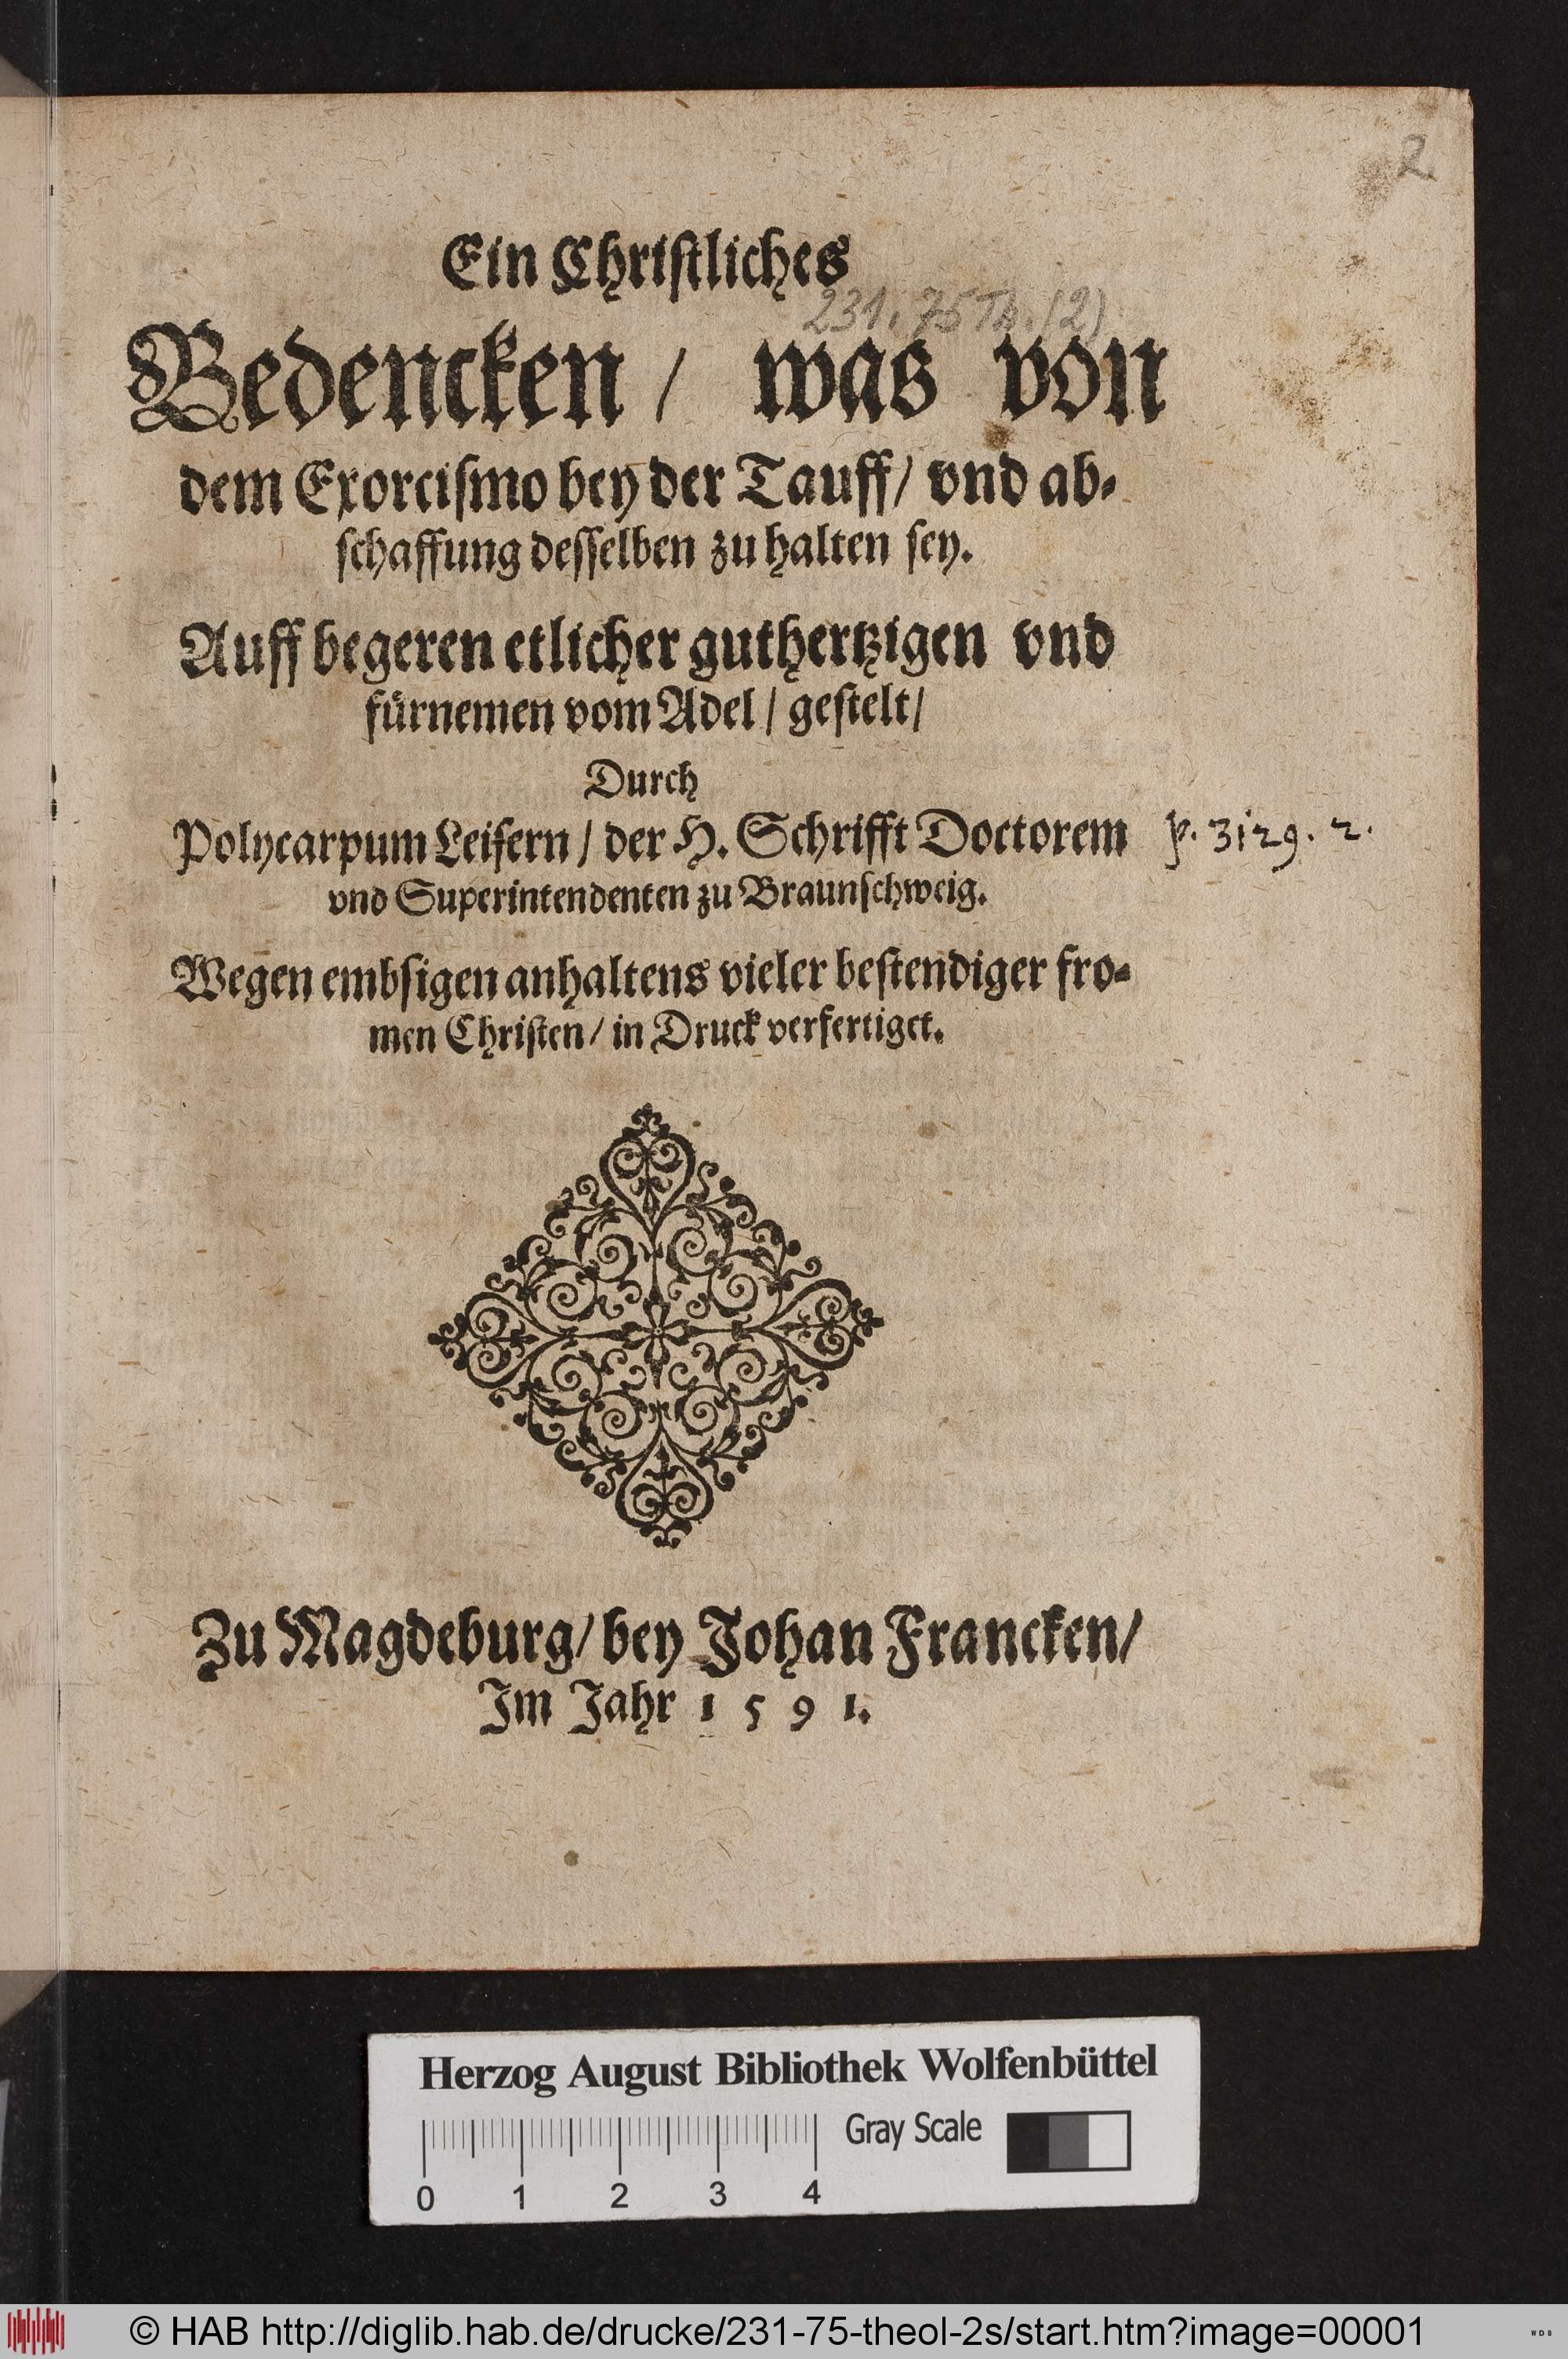 2.
Ein Christliches
231. 75 Th. (2)
Bedencken / was von
dem Exorcismo bey der Tauff / vnd ab-
schaffung desselben zu halten sey.
Auff begeren etlicher guthertzigen vnd
fürnemen vom Adel / gestelt /
Durch
Polycarpum Leisern / der H. Schrifft Doctorem
p. 3129. 2.
vnd Superintendenten zu Braunschweig.
Wegen embsigen anhaltens vieler bestendiger fro-
men Christen / in Druck verfertiget.
Zu Magdeburg / bey Johan Francken /
Im Jahr 1 5 9 1.
Herzog August Bibliothek Wolfenbüttel
Gray Scale
0 1 2 3 4
© HAB http://diglib.hab.de/drucke/231-75-theol-2s/start.htm?image=00001
WDB